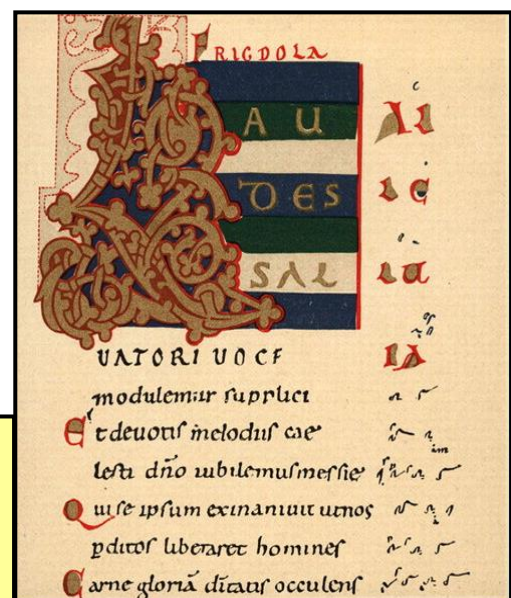 FRIGDOLA
LAU AL
DES LE
SAL LU
UATORI UOCE IA
modulemur supplici
Et deuotis melodiis cae
lesti dño iubilemus messie
Qui se ipsum exinaniuit ut nos
pditos liberaret homines
Carne gloriā dītatis occulens